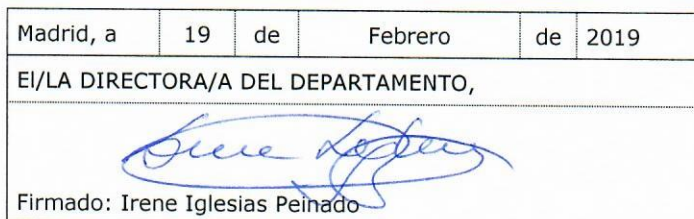 Madrid, a 19 de Febrero de 2019
El/LA DIRECTORA/A DEL DEPARTAMENTO,
Firmado: Irene Iglesias Peinado